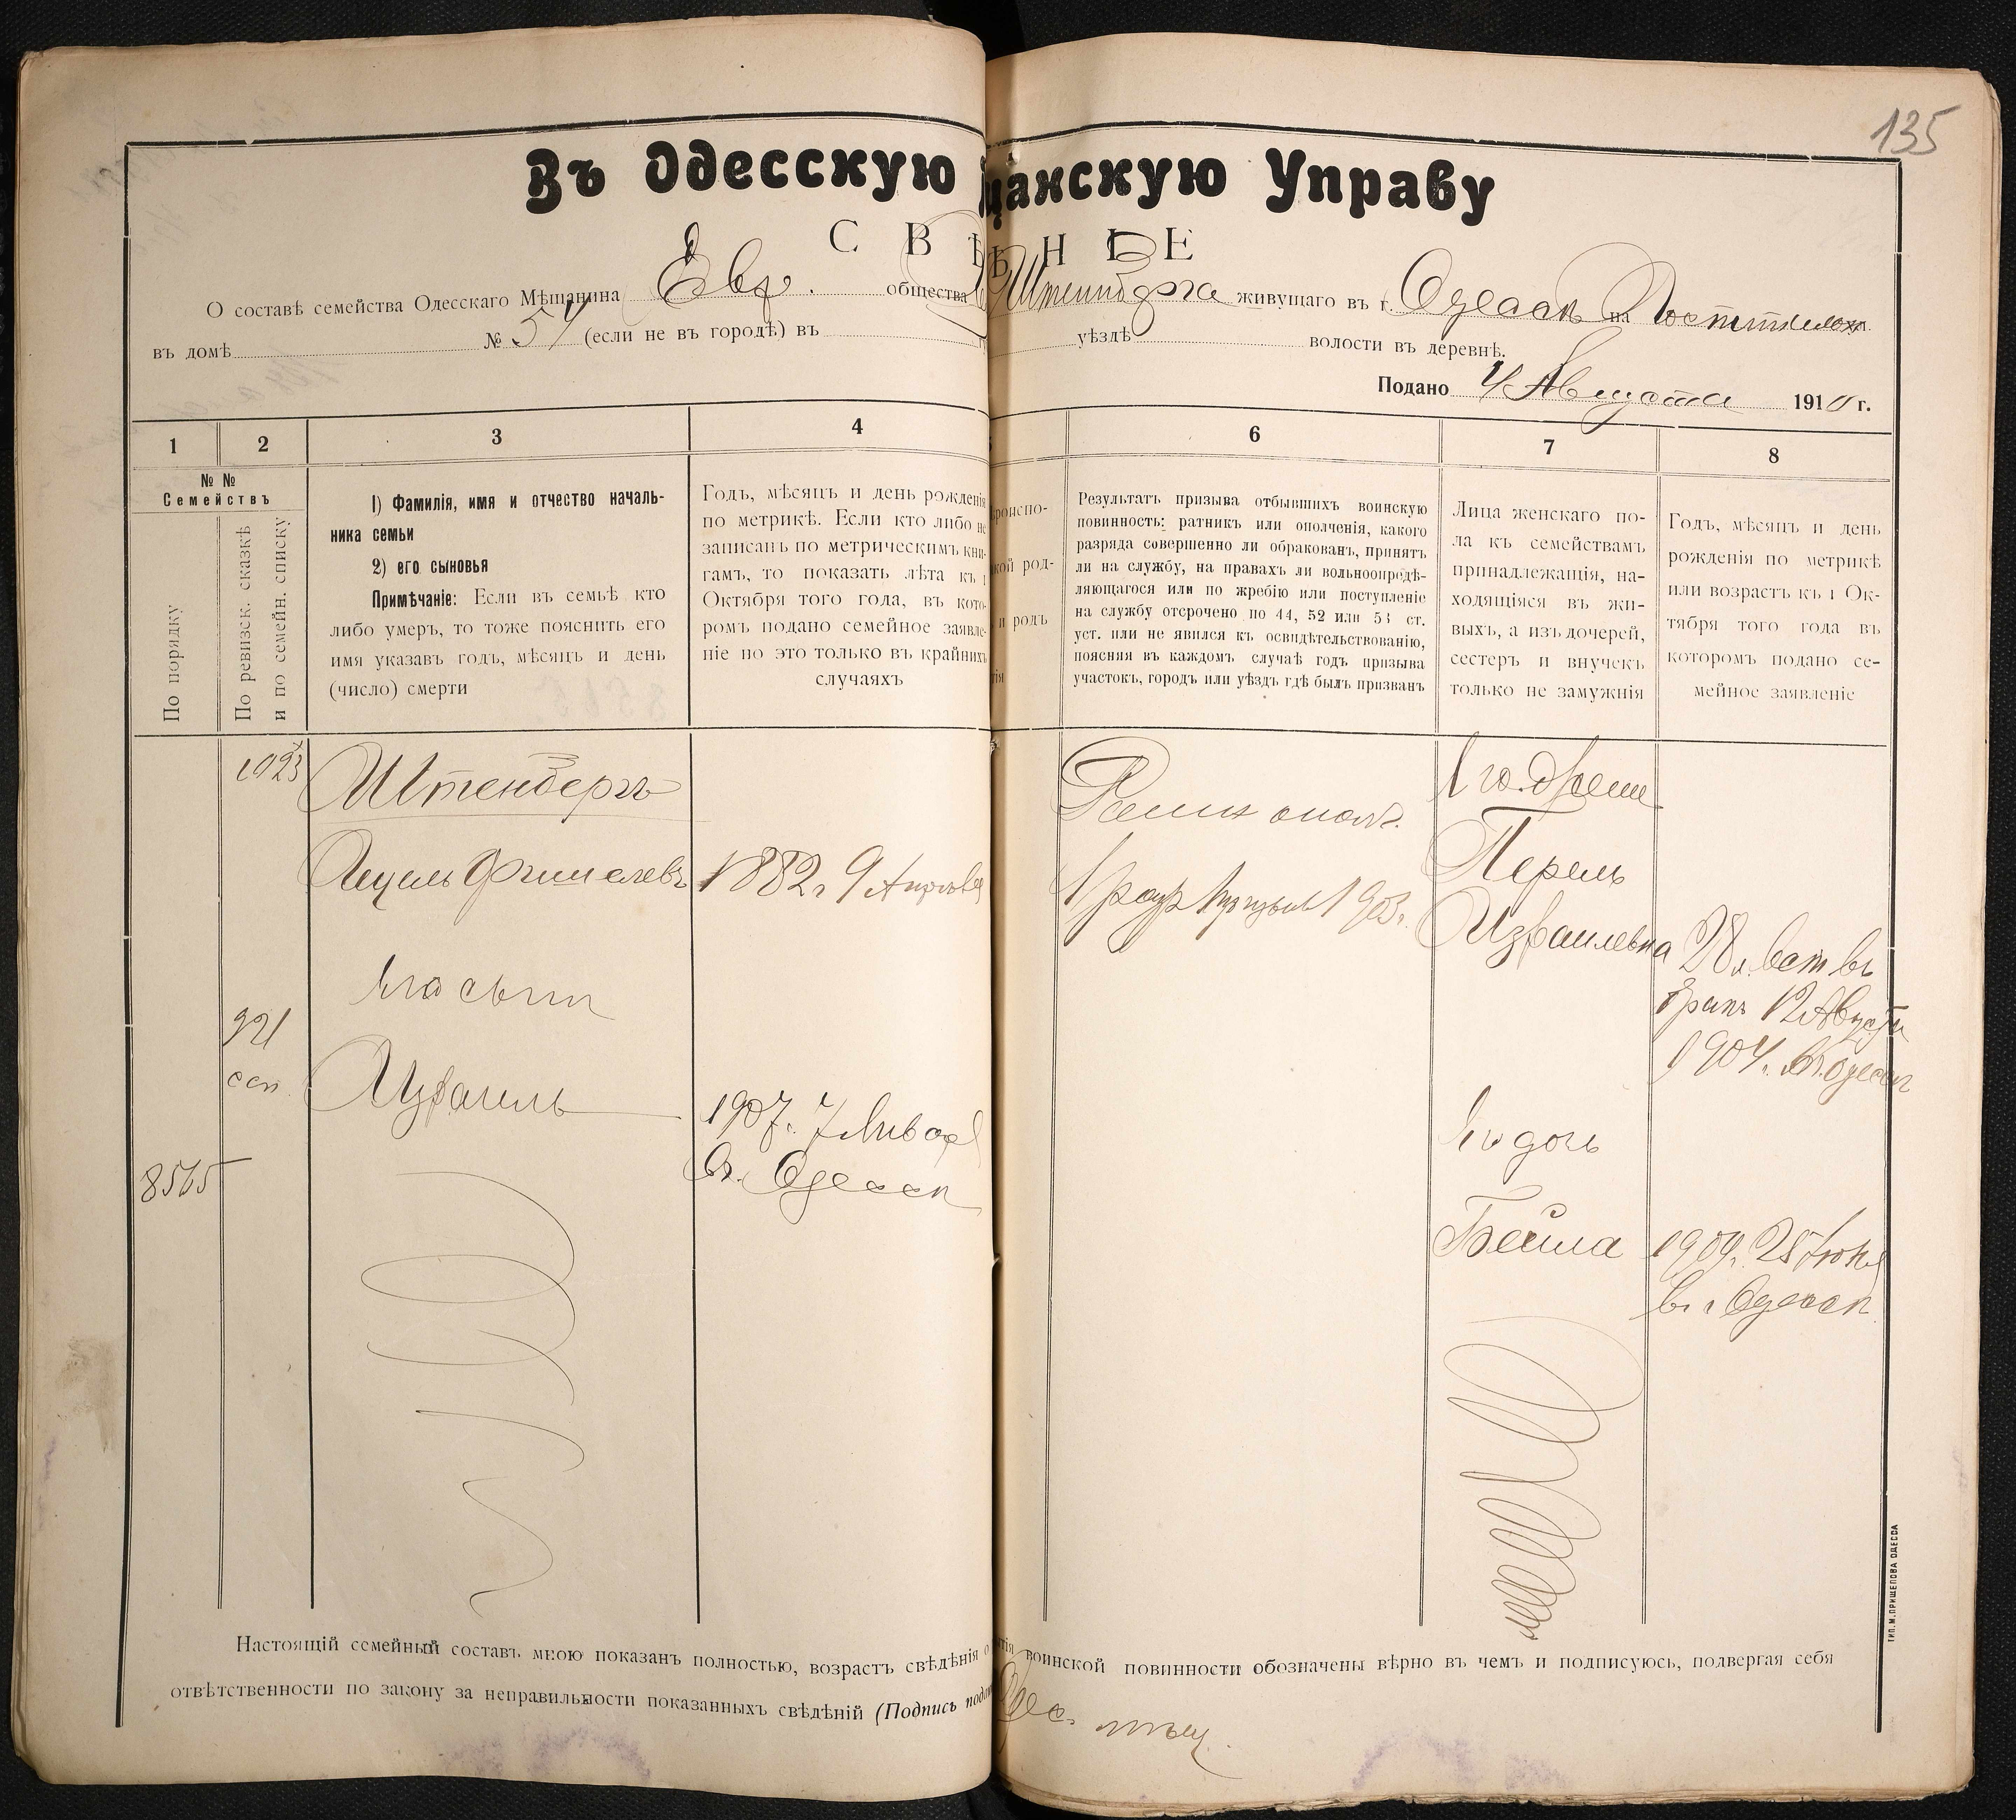 135
Въ Одесскую щанскую Управу
С В Ѣ Н І Е
О составѣ семейства Одесскаго Мѣщанина Евр. общества Штейнберга живущаго въ г. Одессѣ на
въ домѣ № 54 (если не въ городѣ) въ уѣздѣ волости въ деревнѣ.
Подано 4 Августа 1910 г.
1 2 3 4 6 7 8
№ № Семействъ
По порядку
По ревизск. сказкѣ и по семейн. списку
1) Фамилія, имя и отчество началь-
ника семьи
2) его сыновья
Примѣчаніе: Если въ семьѣ кто
либо умеръ, то тоже пояснить его
имя указавъ годъ, мѣсяцъ и день
(число) смерти
Годъ, мѣсяцъ и день рожденія
по метрикѣ. Если кто либо не
записанъ по метрическимъ кни-
гамъ, то показать лѣта къ 1
Октября того года, въ кото-
ромъ подано семейное заявле-
ніе но это только въ крайнихъ
случаяхъ
роиспо-
кой род-
и родъ
тія
Результатъ призыва отбывшихъ воинскую
повинность: ратникъ или ополченія, какого
разряда совершенно ли обракованъ, принятъ
ли на службу, на правахъ ли вольноопредѣ-
ляющагося или по жребію или поступленіе
на службу отсрочено по 44, 52 или 53 ст.
уст. или не явился къ освидѣтельствованію,
поясняя въ каждомъ случаѣ годъ призыва
участокъ, городъ или уѣздъ гдѣ былъ призванъ
Лица женскаго по-
ла къ семействамъ
принадлежащія, на-
ходящіяся въ жи-
выхъ, а изъ дочерей,
сестеръ и внучекъ
только не замужнія
Годъ, мѣсяцъ и день
рожденія по метрикѣ
или возрастъ къ 1 Ок-
тября того года въ
которомъ подано се-
мейное заявленіе
1923
Штенбергъ
Фишелевъ 1882 г 9 Апрѣля
его сынъ
921
Израиль
1907 г. 7 Января
въ г. Одессѣ
8565
Ратн ополч.
1 разр призыва 1903 г.
Его жена
Перель
Израилевна 28 л. вст въ
бракъ 12 Августа
1904 г. въ Одессѣ
Его дочь
Бейла 1909 г. 25 Іюня
въ г Одессѣ
Настоящій семейный составъ мною показанъ полностью, возрастъ свѣдѣнія о тія воинской повинности обозначены вѣрно въ чемъ и подписуюсь, подвергая себя
отвѣтственности по закону за неправильности показанныхъ свѣдѣній (Подпись пода
Одес. мѣщ.
ТИП. М. ПРИЩЕПОВА ОДЕССА